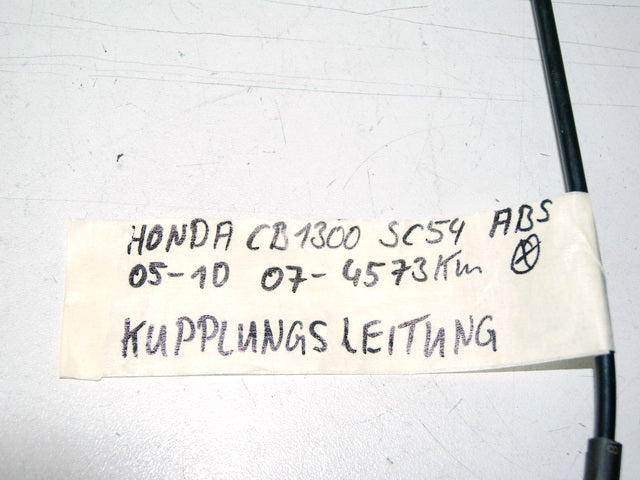 HONDA CB1300 SC54 ABS
05-10 07- 4573Km
KUPPLUNGSLEITUNG